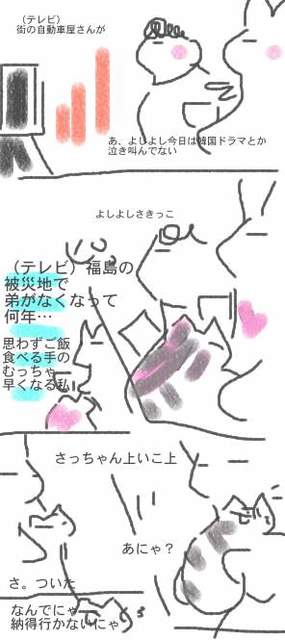 (テレビ)
街の自動車屋さんが
あ、よしよし今日は韓国ドラマとか
泣き叫んでない
よしよしさきっこ
(テレビ)福島の
被災地で
弟がなくなって
何年…
思わずご飯
食べる手の
むっちゃ
早くなる私
さっちゃん上いこ上
あにゃ?
さ。ついた
なんでにゃ
納得行かないにゃ